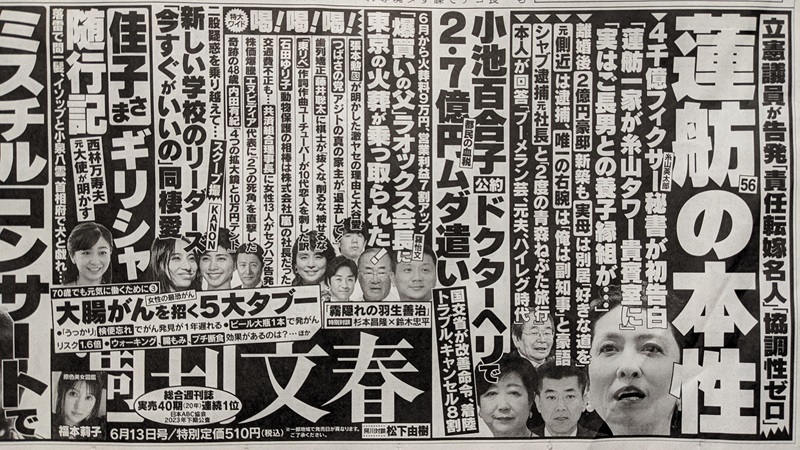 立憲議員が告発「責任転嫁名人」「協調性ゼロ」
蓮舫の本性
56
4千億フィクサー糸山英太郎秘書が初告白
「蓮舫一家が糸山タワー貴賓室に」
「実はご長男との養子縁組が…」
離婚後2億円豪邸新築も実母は別居「好きな道を」
元側近は逮捕、唯一の右腕は「俺は副知事」と豪語
シャブ逮捕元社長と2度の青森ねぶた旅行
本人が回答「ブーメラン芸、元夫、ハイレグ時代」
小池百合子公約ドクターヘリで
2・7億円ムダ遣い
都民の血税
国交省が改善命令、着陸
トラブル、キャンセル8割
6月から火葬料9万円、営業利益7割アップ
「爆買いの父」ラオックス会長に
羅怡文
東京の火葬が乗っ取られた!
特大ワイド
喝!喝!喝!
張本勲が明かした激ヤセの理由と大谷愛
つばさの党 アジトの真の家主が退去して
歯列矯正 藤井聡太に棋士が「抜くな、削るな、被せるな」
石田ゆり子 動物保護の相棒は株式会社の社長だった
交通費不正も…共済組合理事長に女性13人がセクハラ告発
株価爆騰エヌビディア代表に「2つの死角」を直撃した
奇跡の48歳内田有紀「4つの拡大鏡と10万円テント」
二股疑惑を乗り越えて…
スクープ撮
KANON
新しい学校のリーダーズ
「今すぐがいいの」同棲愛
佳子さまギリシャ
随行記
西林万寿夫
元大使が明かす
落語で問一髪、イソップと小泉八雲、首相府で犬と戯れ…
ミスチルコンサートで
70歳でも元気に働くために③
女性の最恐がん
大腸がんを招く5大タブー
●「うっかり」検便忘れでがん発見が1年遅れる ●ビール大瓶1本で発がん
リスク1.6倍 ●ウォーキング、腸もみ、プチ断食 効果があるのは?…ほか
「霧隠れの羽生善治」
特別対談
杉本昌隆×鈴木忠平
週刊文春
原色美女図鑑
福本莉子
総合週刊誌
実売40期(20年)連続1位
日本ABC協会
2023年下期公査
6月13日号/特別定価510円(税込)
※一部地域で発売日が異なります。
ご了承ください。
阿川対談
松下由樹